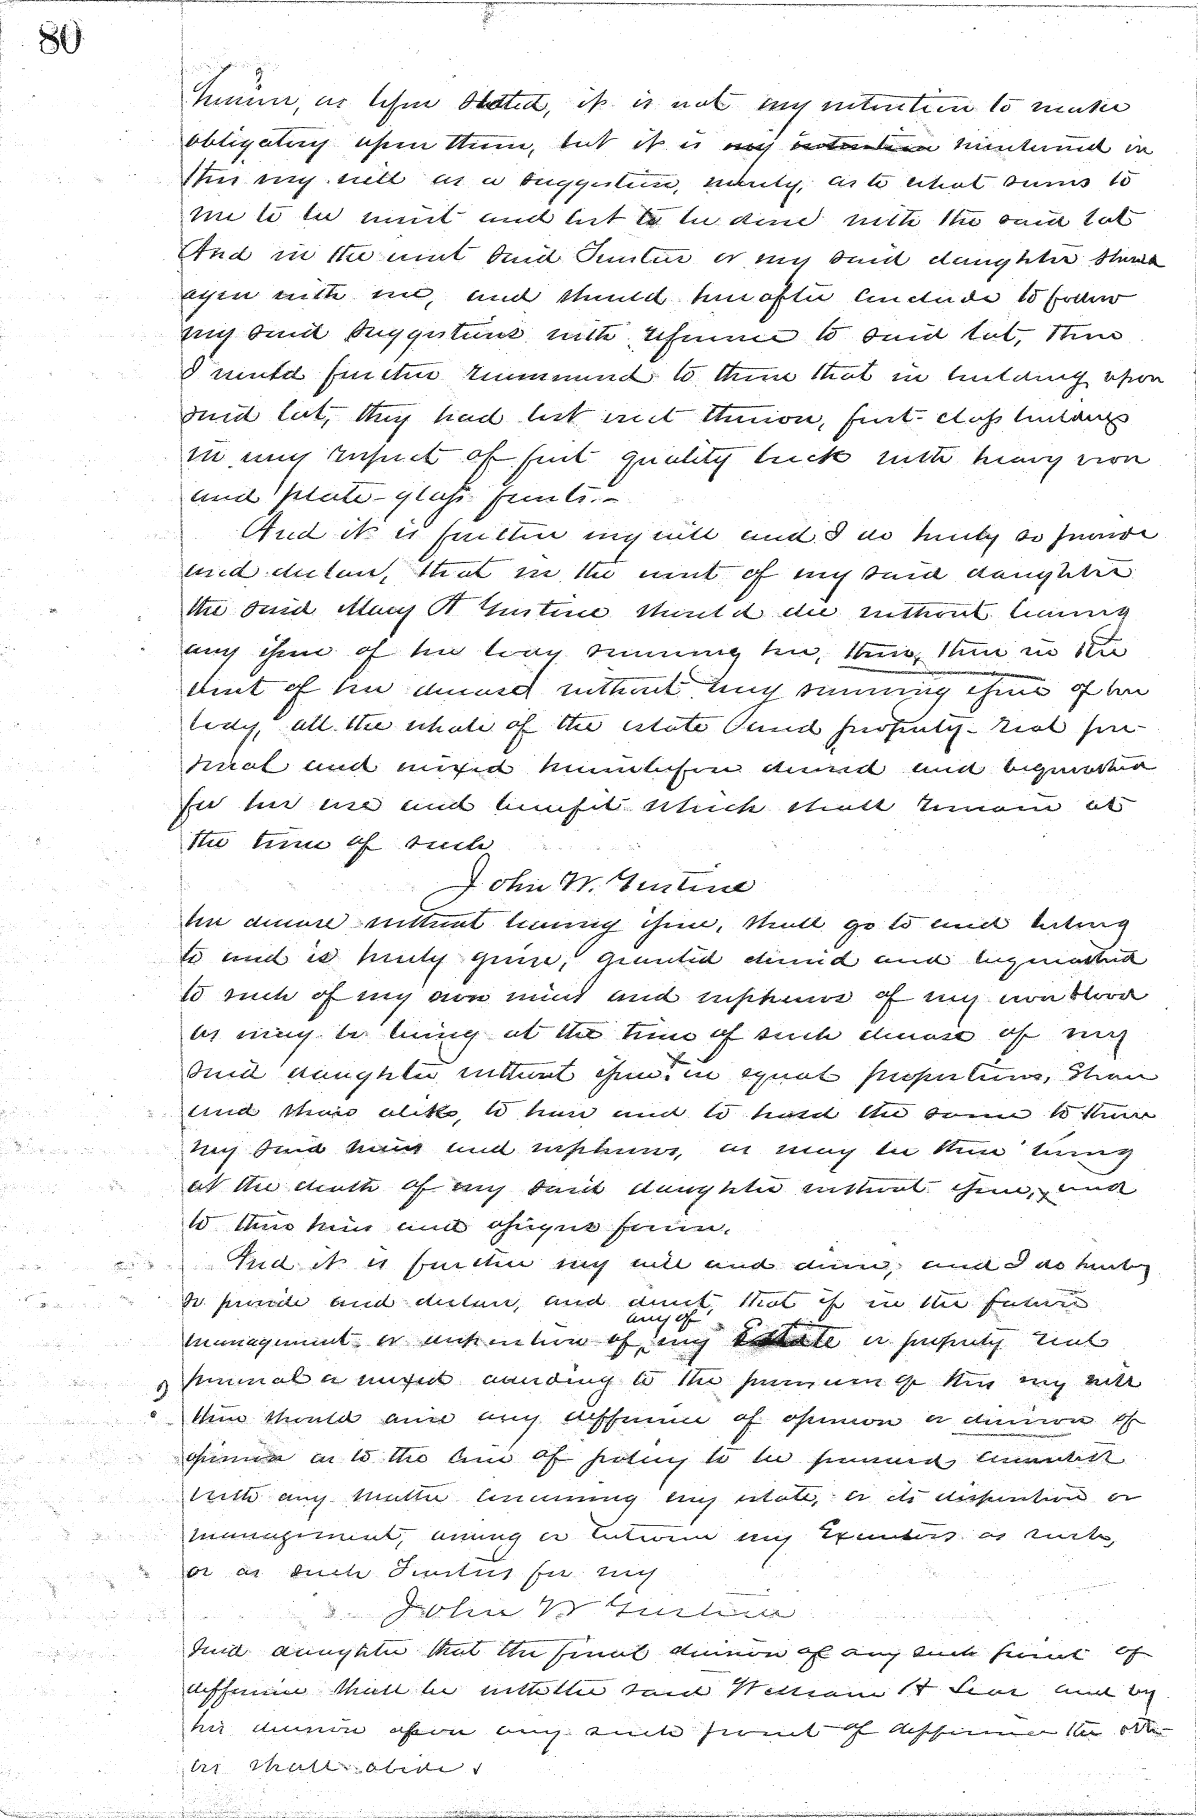 80
herein, as before stated, it is not my intention to make
obligatory upon them, but it is my intention mentioned in
this my will as a suggestion, merely, as to what seems to
me to be meet and best to be done with the said lot
And in the event said Trustees or my said daughter should
agree with me, and should hereafter conclude to follow
my said suggestions with reference to said lot, then
I would further recommend to them that in building upon
said lot, they had best erect thereon, first-class buildings
in every respect of first quality brick with heavy iron
and plate-glass fronts.-
And it is further my will and I do hereby so provide
and declare, that in the event of my said daughter
the said Mary A Gustine should die without leaving
any issue of her body surviving her, then, then in the
event of her decease without any surviving issue of her
body, all the whole of the estate and property- real per-
sonal and mixed hereinbefore devised and bequeathed
for her use and benefit which shall remain at
the time of such
John W. Gustine
her decease without leaving issue, shall go to and belong
to and is hereby given, granted devised and bequeathed
to such of my own nieces and nephews of my own blood
as may be living at the time of such decease of my
said daughter without issue, in equal proportions, share
and share alike, to have and to hold the same to them
my said nieces and nephews, as may be then living
at the death of my said daughter without issue, and
to their heirs and assigns forever.
And it is further my will and desire, and I do hereby
so provide and declare, and direct, that if in the future
any of
management or disposition of my Estate or property real
personal or mixed according to the provisions of this my will
there should arise any difference of opinion or division of
opinion as to the line of policy to be pursued connected
with any matter concerning my estate, or its disposition or
management, among or between my Executors as such,
or as such Trustees for my
John W Gustine
said daughter that the final decision of any such point of
difference shall be with the said William A and by
his decision upon any such point of difference the oth-
ers shall abide.